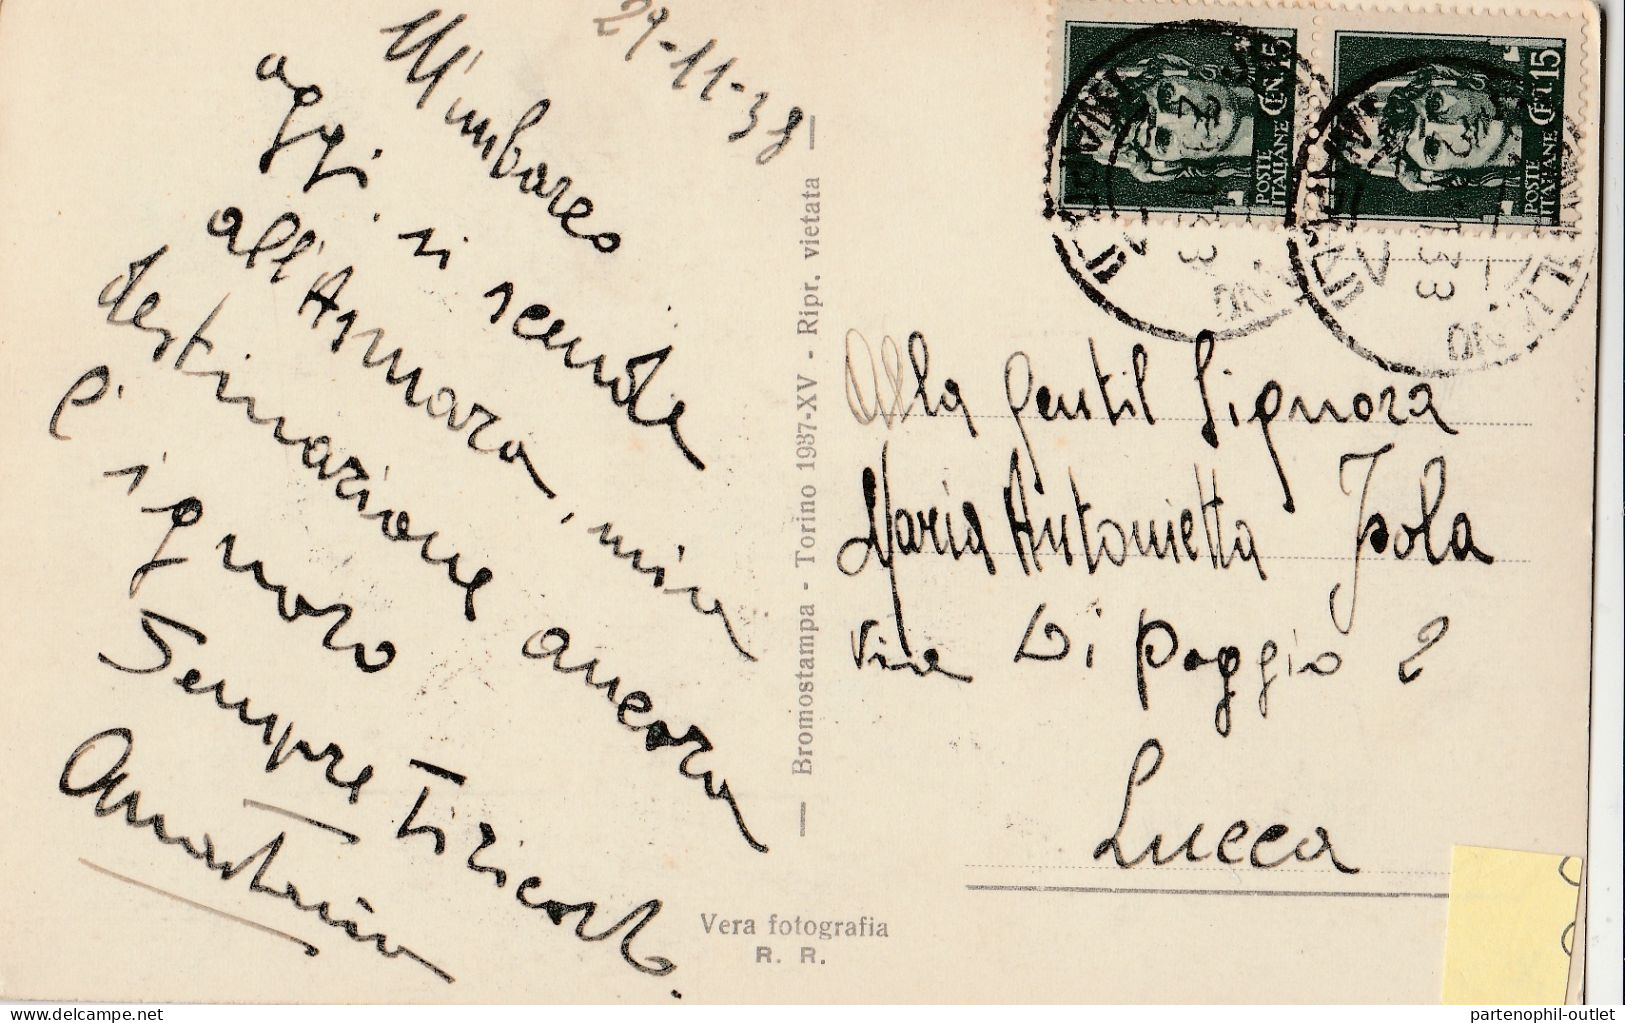 29-11-38
M'imbarco
oggi, si scende
all'Asmara, mia
destinazione ancora
l'ignoro
Sempre Ti ricordo.
— Bromostampa - Torino 1937-XV - Ripr. vietata —
Vera fotografia
R. R.
POSTE ITALIANE CENT.15
POSTE ITALIANE CENT.15
Alla Gentil Signora
Maria Antonietta Isola
Via Di Poggio 2
Lucca
partenophil-outlet